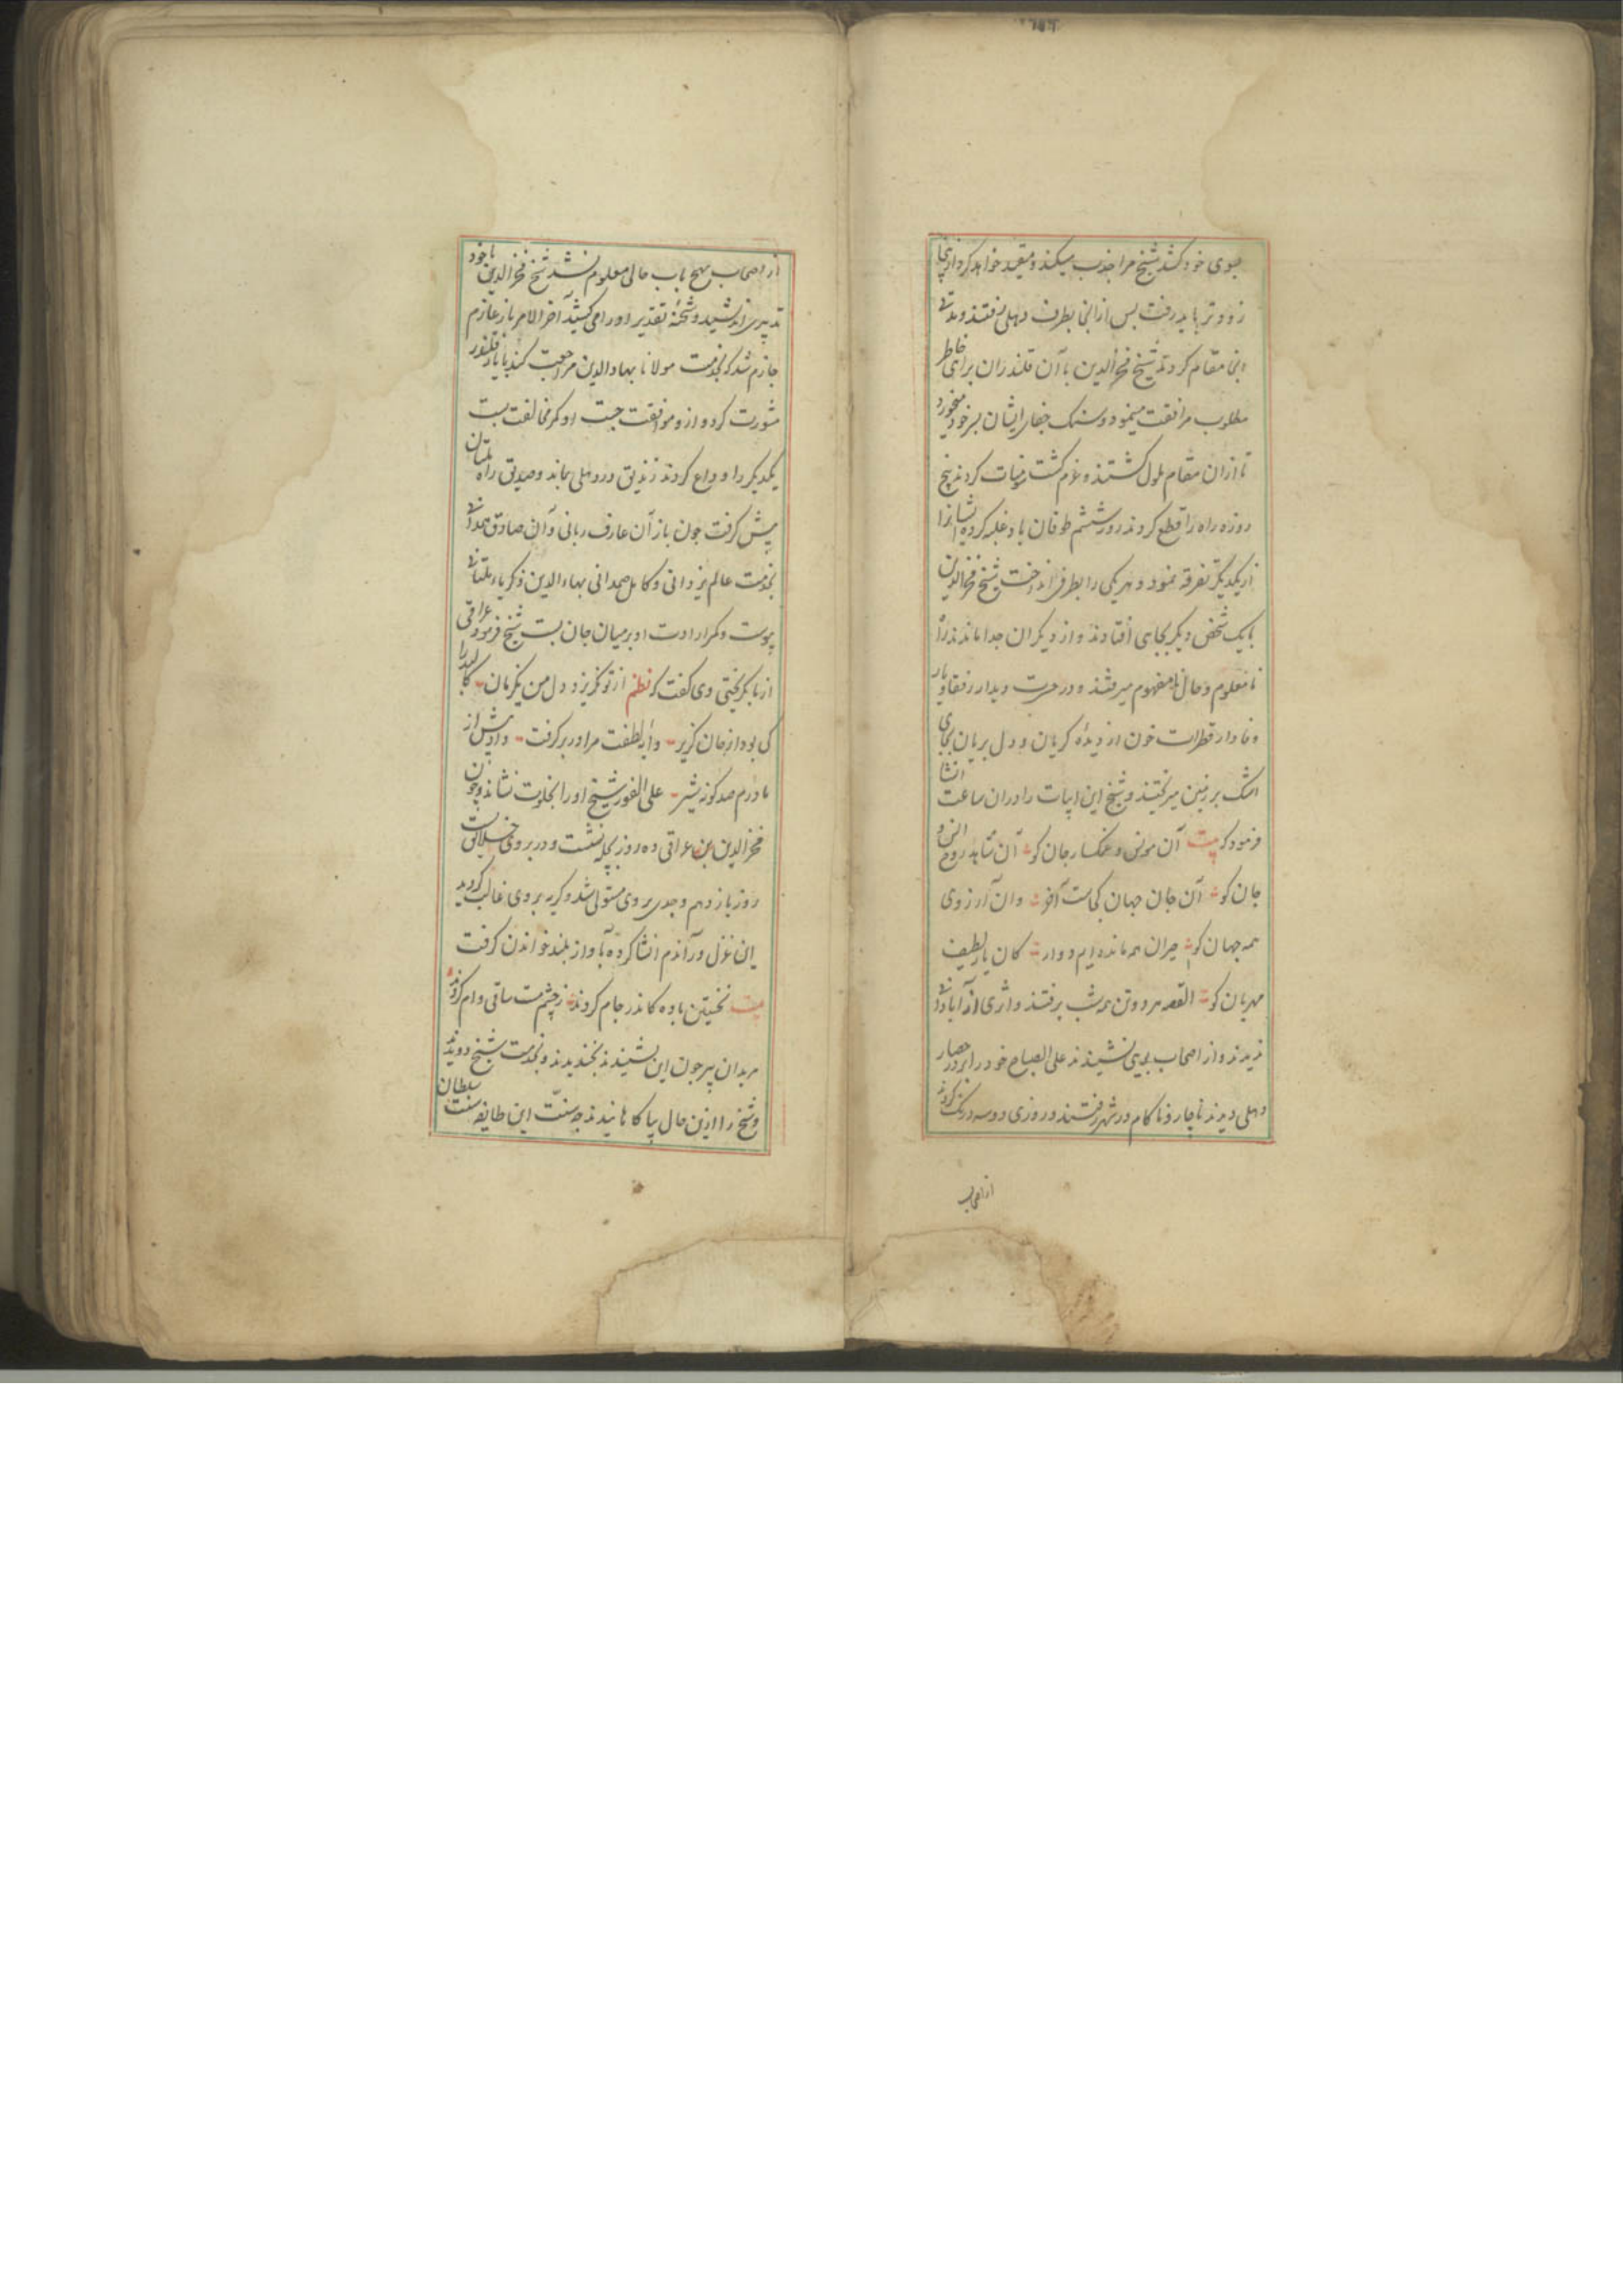 بسوی خود کشد شیخ مرا جذب میکند و مقید خواهد کرد ازینجا
زودتر باید رفت بس از انجا بطرف دهلی رفتند و مدتی
انجا مقام کردند شیخ فخرالدین با آن قلندران برای خاطر
مطلوب مرافقت مینمود و سنک جفای ایشان بر خود میخورد
تا ازان مقام ملول کشتند و عزم کشت سومنات کردند پنج
روزه راه را قطع کردند روز ششم طوفان باد غلبه کرده ایشانرا
از یکدیکر تفرقه نمود و هر یکی را بطرفی انداخت شیخ فخرالدین
با یک شخص دیکر بجایی افتادند و از دیکران جدا ماندند راه
نامعلوم و حال نامفهوم میرفتند و در حسرت دیدار رفقا و یار
وفادار قطرات خون از دیدهٔ کریان و دل بریان بجای
اشک بر زمین میریختند و شیخ این ابیات را دران ساعت انشا
فرمود که بیت آن مونس و غمکسار جان کو آن شاهد روح انس و
جان کو آن جان جهان کجاست آخر وان آرزوی
همه جهان کو حیران همه مانده ایم و واله کان یار لطیف
مهربان کو القصه هر دو تن همه شب برفتند و اثری از آبادانی
ندیدند و از اصحاب بویی نشنیدند علی الصباح خود را بر در حصار
دهلی دیدند ناچار و ناکام در شهر رفتند و روزی دو سه درنک کردند
از اصحاب
از اصحاب بهیج باب حالی معلوم نشد شیخ فخرالدین با خود
تدبیری اندیشید و شحنهٔ تقدیر او را می کشید آخر الامر باز عازم
جازم شد که بخدمت مولانا بهاءالدین مراجعت کند با یار قلندر
مشورت کرد و از و موافقت جست او کمر مخالفت بست
یکدیکر را وداع کردند زندیق در دهلی بماند و صدیق راه ملتان
پیش کرفت جون باز آن عارف ربانی و آن صادق همدانی
بخدمت عالم یزدانی و کامل صمدانی بهاءالدین زکریاء ملتانی
پیوست و کمر ارادت او بر میان جان بست شیخ فرمود عراقی
از ما بکریختی وی کفت که نظم از تو نکریزد دل من یکزمان کالبد را
کی بود از جان کزیر دایهٔ لطفت مرا در بر کرفت داد بیش از
مادرم صد کونه شیر علی الفور شیخ او را بخلوت نشاند و چون
فخرالدین بن عراقی ده روز بچله نشست و در بروی خلایق ببست
روز یازدهم وجدی بر وی مستولی شد و کریه بر وی غالب کردید
این غزل در آندم انشا کرده بآواز بلند خواندن کرفت
بیت نخستین باده کاندر جام کردند ز چشم مست ساقی وام کردند
مریدان پیر جون این بشنیدند بخندیدند و بخدمت شیخ دویدند
و شیخ را ازین حال بیاکاهانیدند جه سنت این طایفه سنت سلطان